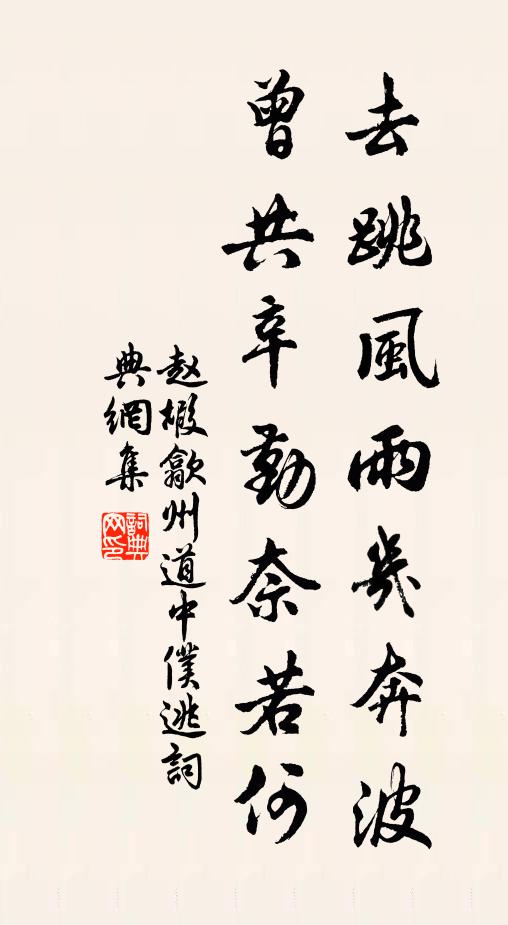 去跳風雨幾奔波
曾共辛勤奈若何
赵嘏歙州道中僕逃詞
典網集
詞典
网印